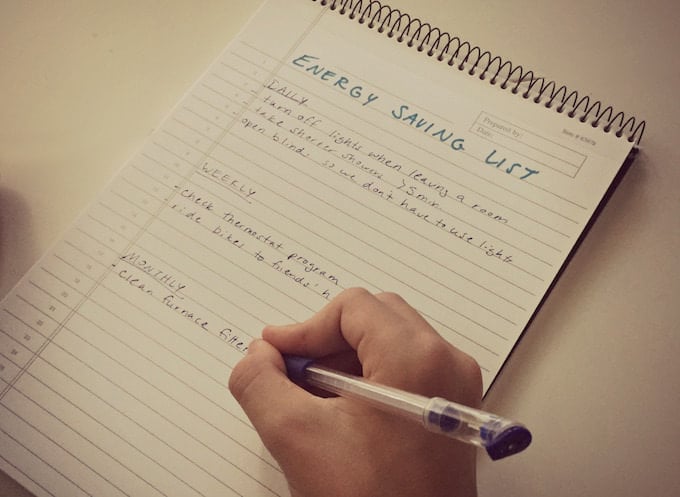 ENERGY SAVING LIST
Prepared by:
Date:
DAILY
- turn off lights when leaving a room
- take shorter showers >5 min
- open blinds so we don't have to use lights
WEEKLY
- check thermostat program
- ride bikes to friends' h
MONTHLY
- clean furnace filter